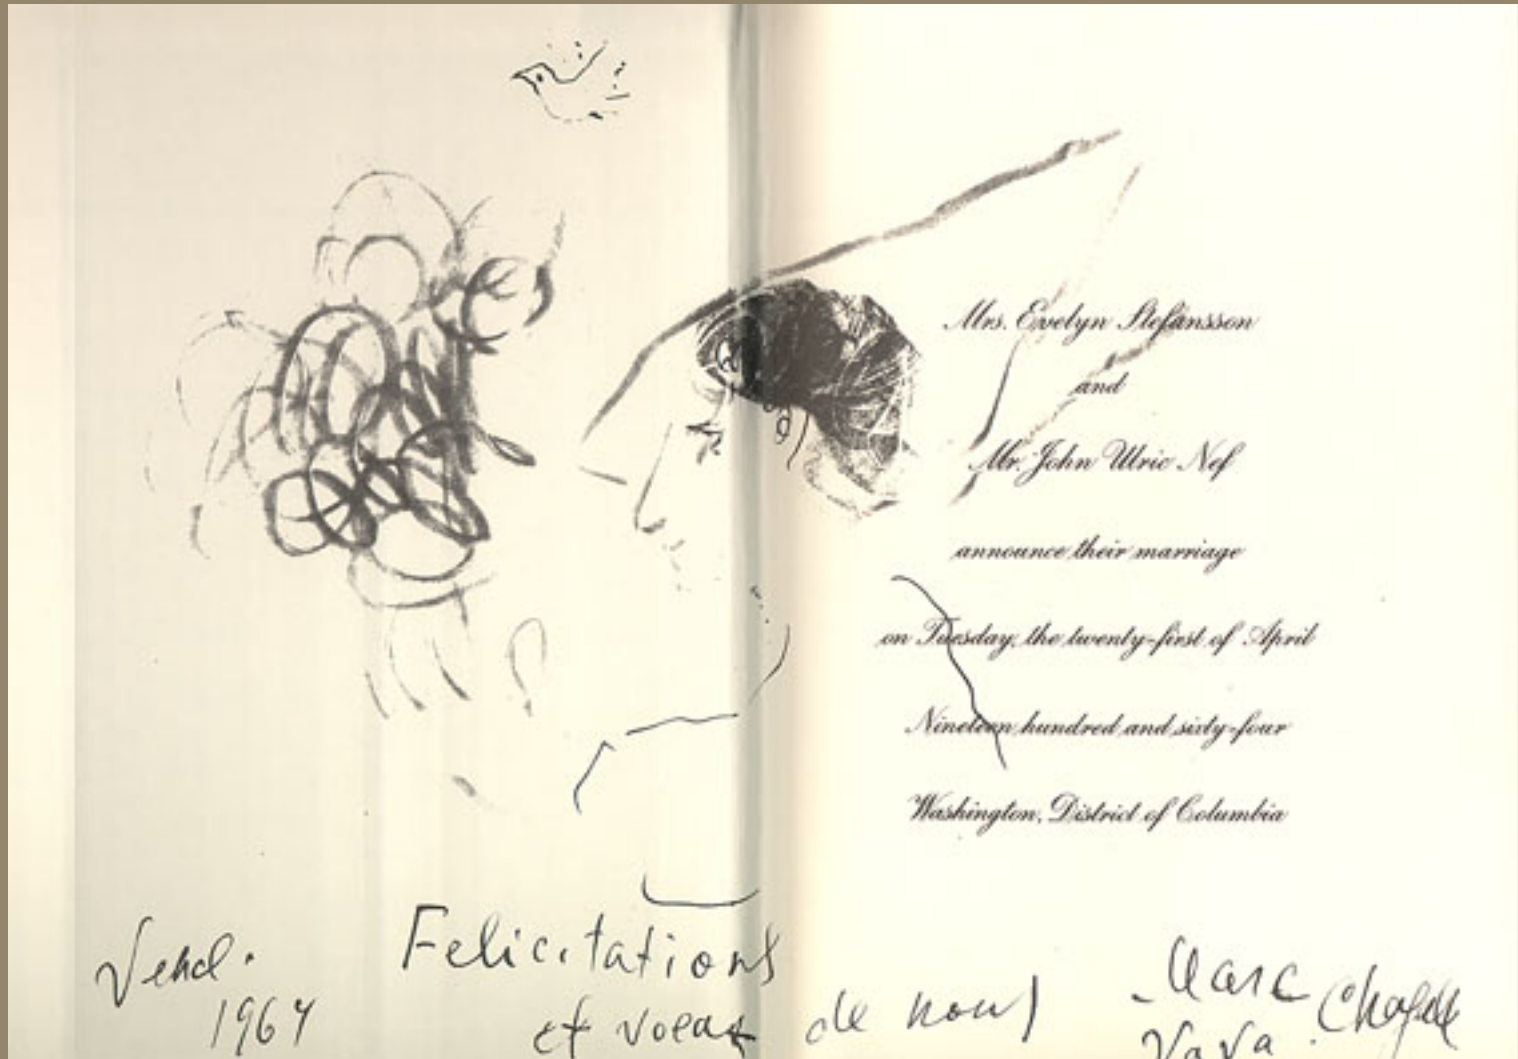 Mrs. Evelyn Stefansson
and
Mr. John Ulric Nef
announce their marriage
on Tuesday, the twenty-first of April
Nineteen hundred and sixty-four
Washington, District of Columbia
1964
Felicitations
et voeax de nous
Marc Chagall
Vava